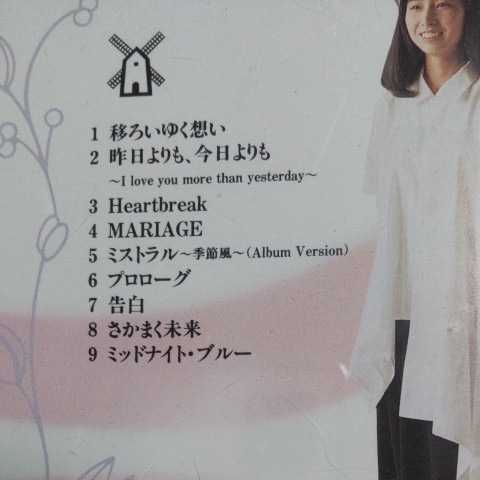 1 移ろいゆく想い
2 昨日よりも、今日よりも
～I love you more than yesterday～
3 Heartbreak
4 MARIAGE
5 ミストラル～季節風～(Album Version)
6 プロローグ
7 告白
8 さかまく未来
9 ミッドナイト・ブルー